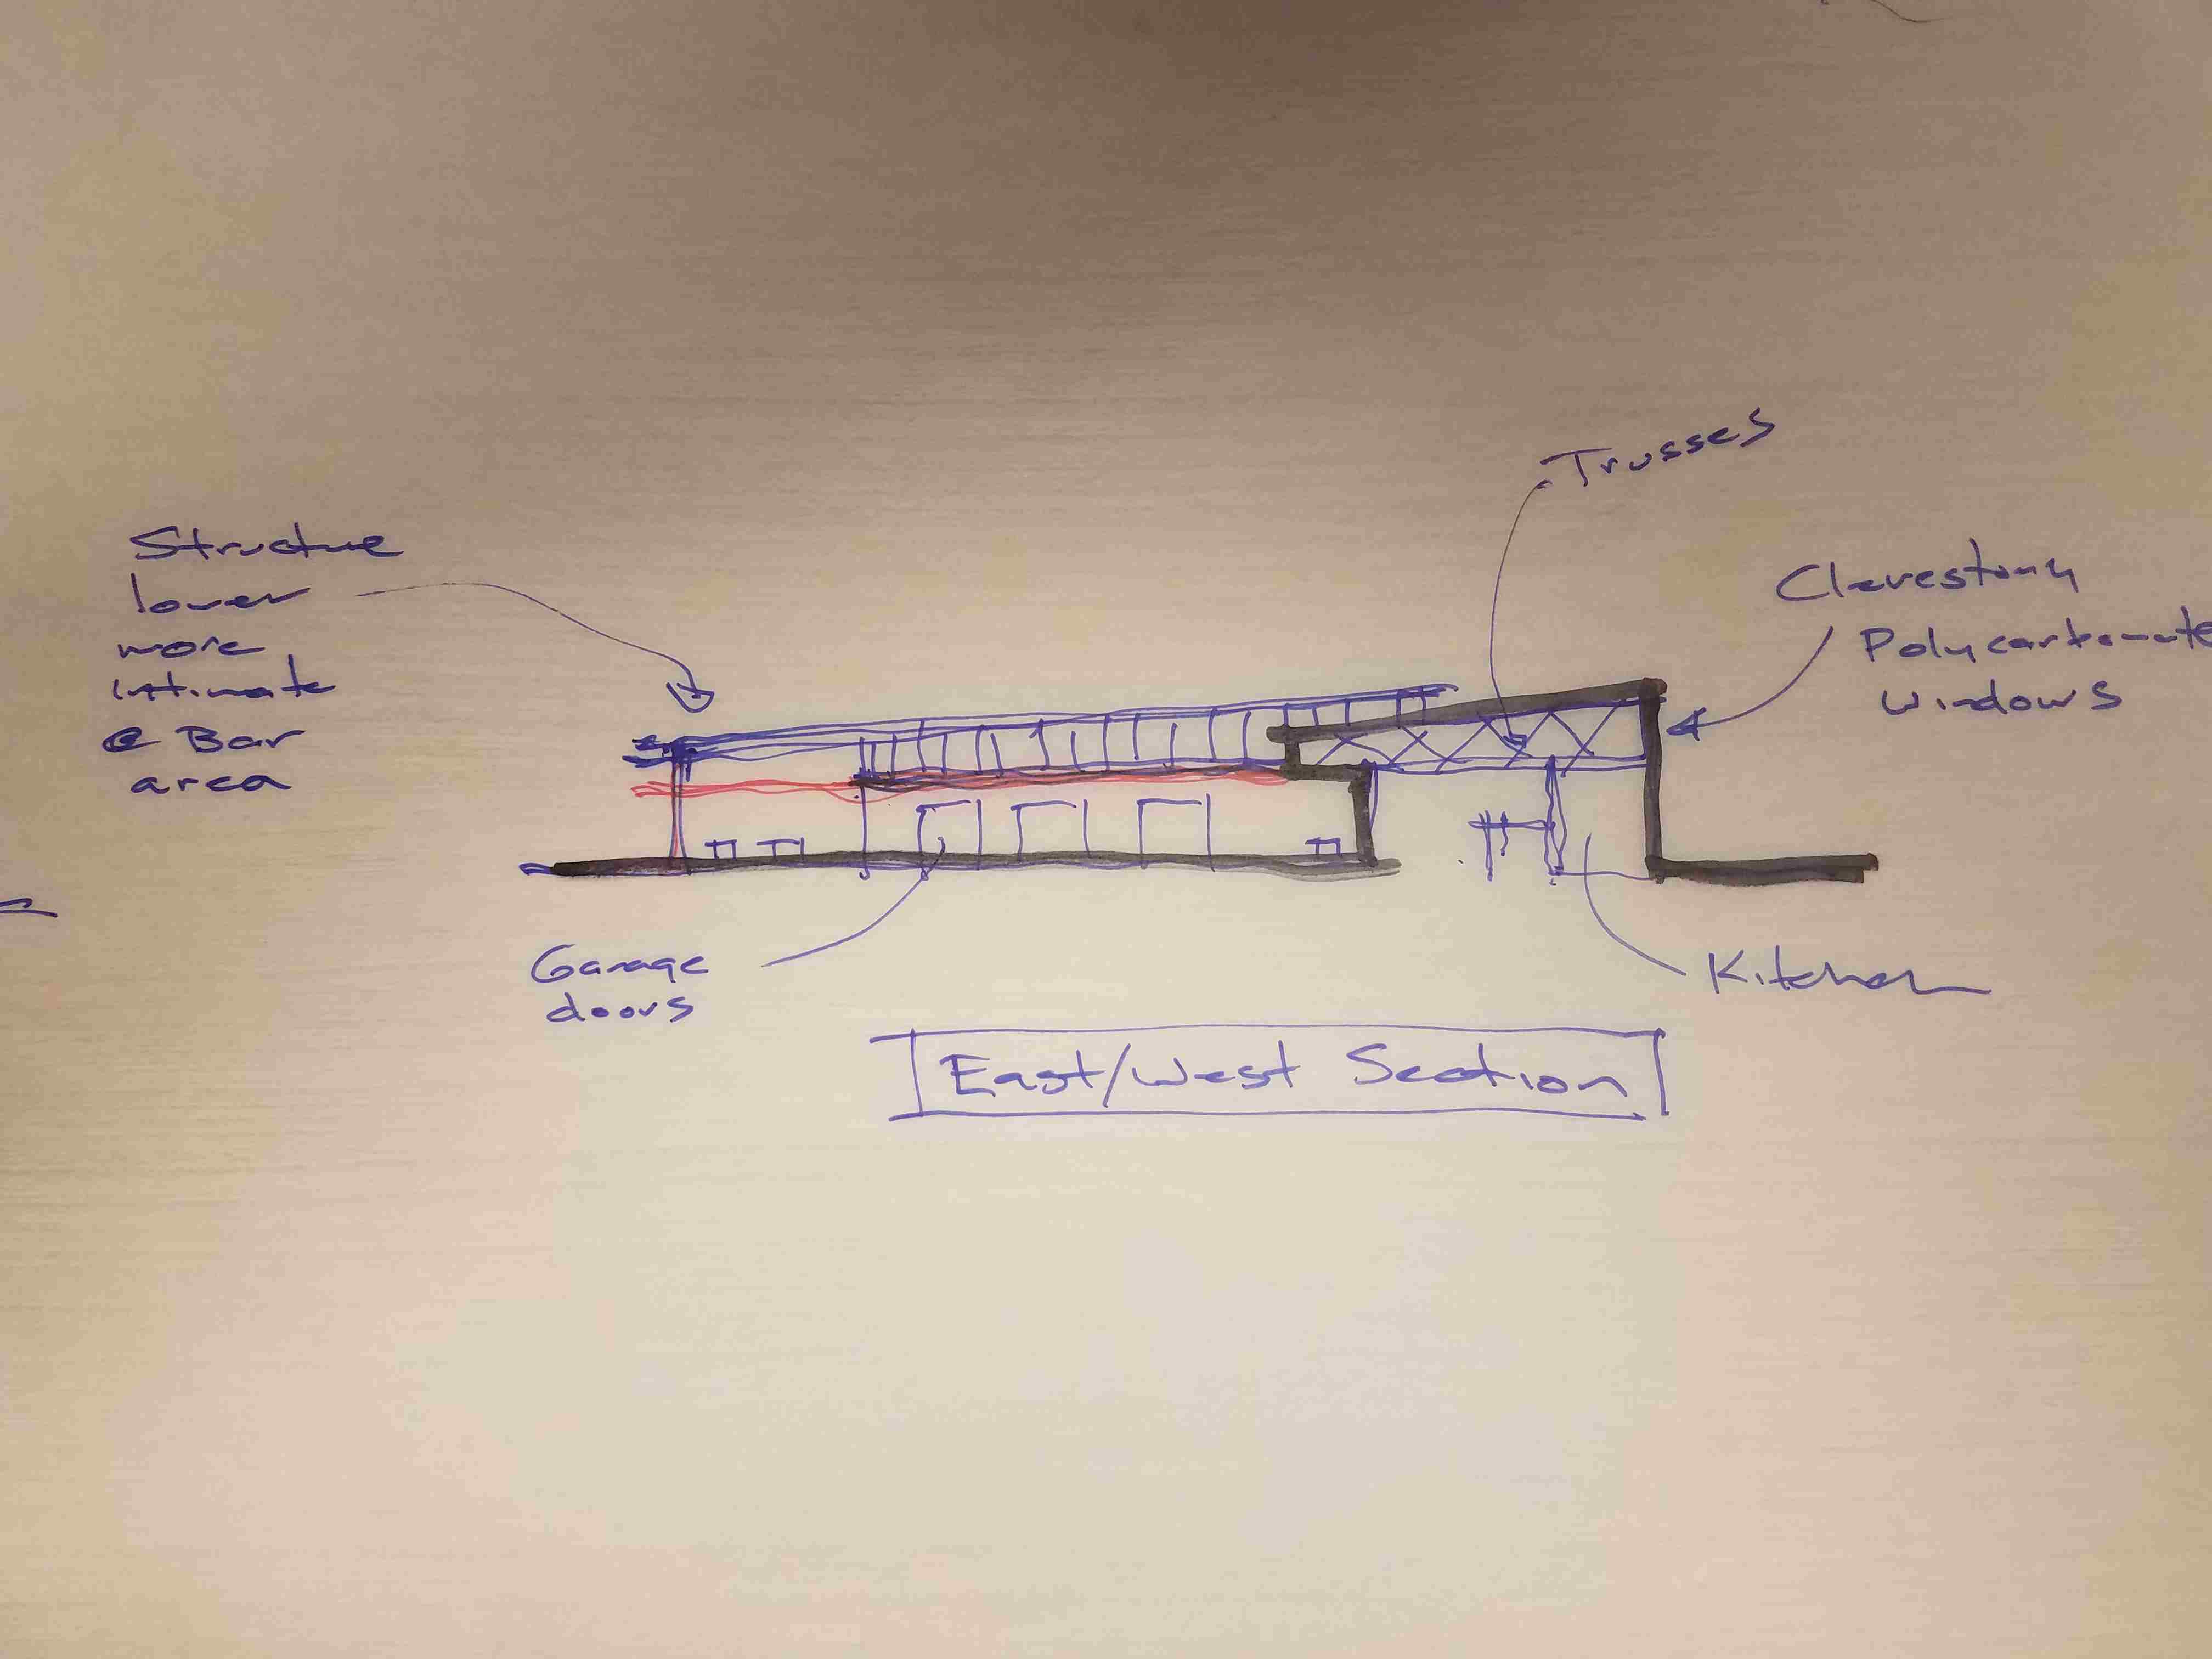 Trusses
Structure
lower
more
intimate
@ Bar
area
Clerestory
Polycarbonate
windows
Garage
doors
Kitchen
East/West Section